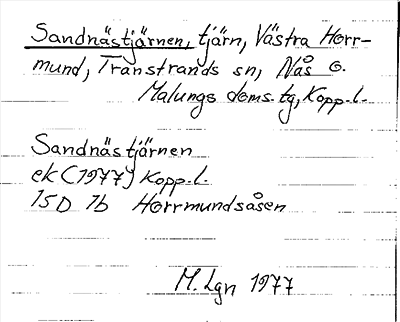 Sandnästjärnen, tjärn, Västra Horr-
mund, Transtrands sn, Nås o.
Malungs doms.tg, Kopp.l.
Sandnästjärnen
ek (1977) Kopp.l.
15D 1b Horrmundsåsen
M. Lgn 1977